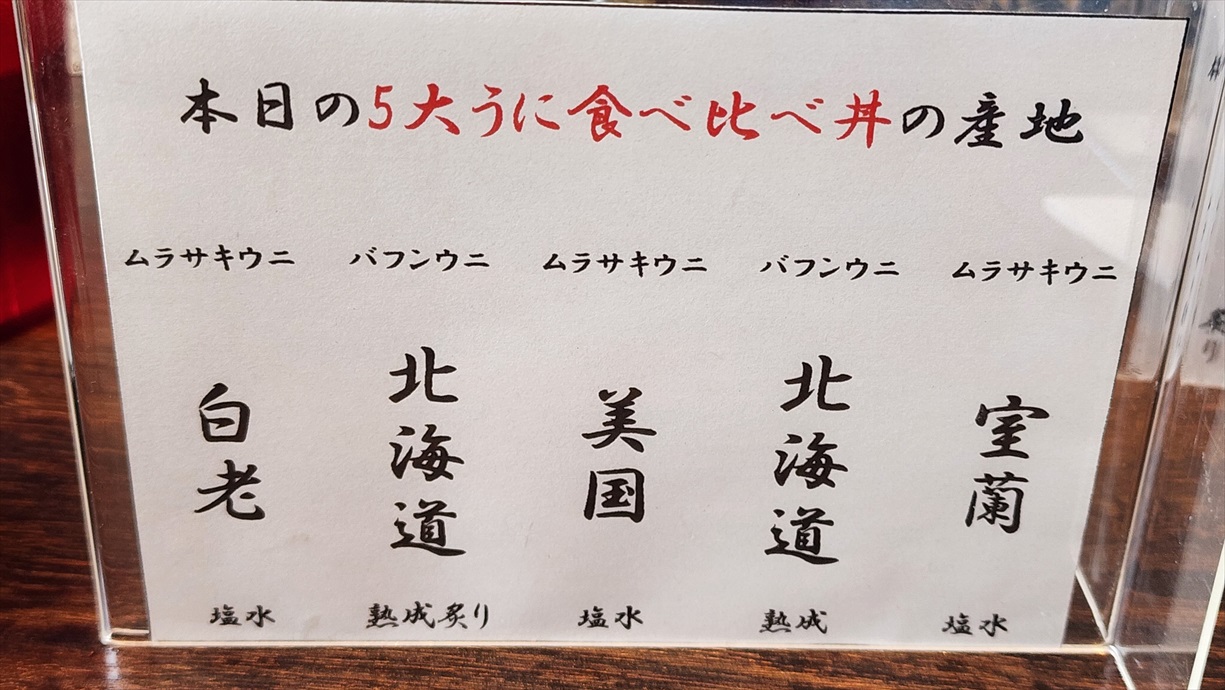 本日の5大うに食べ比べ丼の産地
ムラサキウニ バフンウニ ムラサキウニ バフンウニ ムラサキウニ
白老 北海道 美国 北海道 室蘭
塩水 熟成炙り 塩水 熟成 塩水